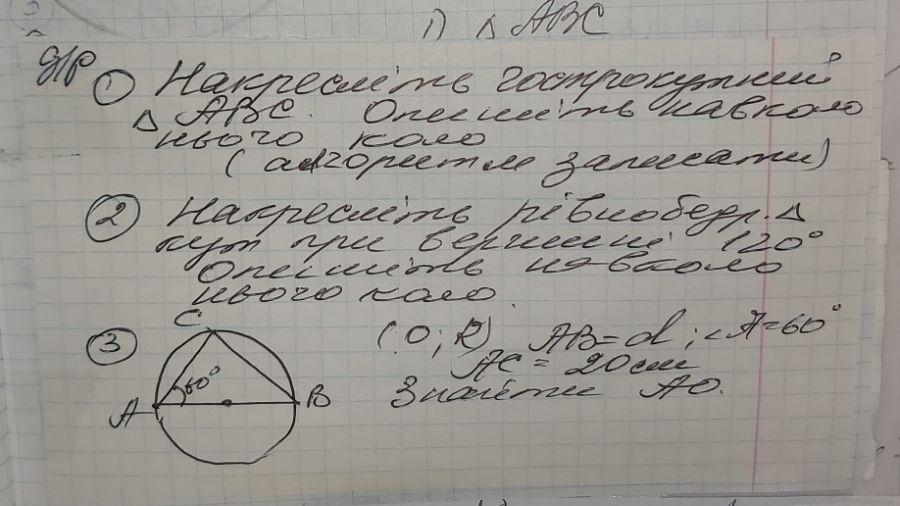 1) Δ ABC
д/р
① Накресліть гострокутний
Δ ABC. Опишіть навколо
нього коло
(алгоритм записати)
② Накресліть рівнобедр. Δ
кут при вершині 120°
Опишіть навколо
нього коло.
③ (O; R) AB = d; ∠A = 60°
AC = 20 см
Знайти AO.
C
60°
A
B